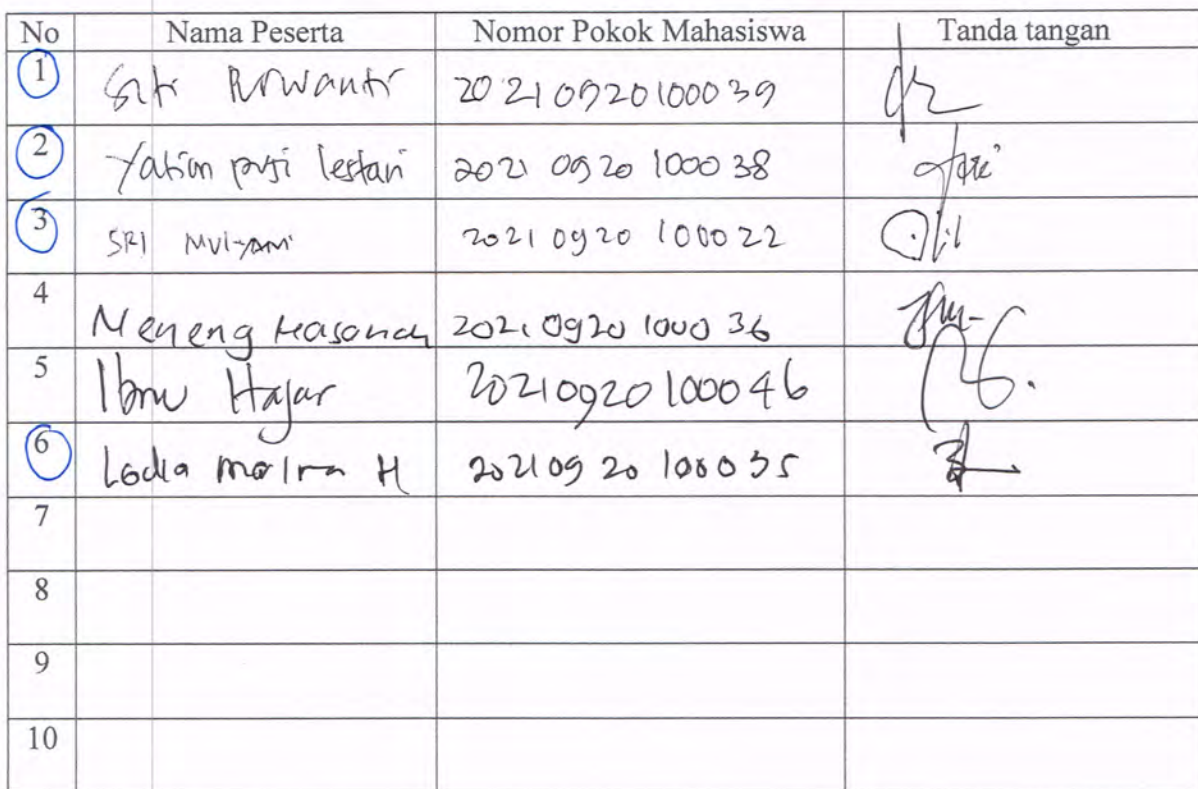 No Nama Peserta Nomor Pokok Mahasiswa Tanda tangan
1 Siti 20210920100039
2 puji lestari 20210920100038
3 SRI Mulyani 20210920100022
4 Neneng Hasanah 20210920100036
5 Ibnu Hajar 20210920100046
6 H 20210920100035
7
8
9
10